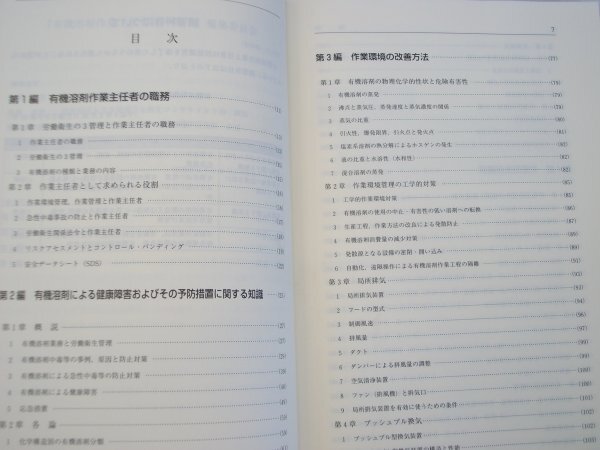 目 次
第1編 有機溶剤作業主任者の職務
第1章 労働衛生の3管理と作業主任者の職務
1 作業主任者の職務
2 労働衛生の3管理
3 有機溶剤の種類と業務の内容
第2章 作業主任者として求められる役割
1 作業環境管理、作業管理と作業主任者
2 急性中毒事故の防止と作業主任者
3 労働衛生関係法令と作業主任者
4 リスクアセスメントとコントロール・バンディング
5 安全データシート(SDS)
第2編 有機溶剤による健康障害およびその予防措置に関する知識
第1章 概 説 (27)
1 有機溶剤業務と労働衛生管理 (27)
2 有機溶剤中毒等の事例、原因と防止対策
3 有機溶剤による急性中毒等の防止対策
4 有機溶剤による健康障害
5 応急措置
第2章 各 論
1 化学構造別の有機溶剤分類
7
第3編 作業環境の改善方法 (77)
第1章 有機溶剤の物理化学的性状と危険有害性 (78)
1 有機溶剤の蒸発 (79)
2 沸点と蒸気圧、蒸発速度と蒸気濃度の関係 (79)
3 蒸気の比重 (80)
4 引火性、爆発限界、引火点と発火点 (81)
5 塩素系溶剤の熱分解によるホスゲンの発生 (82)
6 液の比重と水溶性(水和性) (82)
7 混合溶剤の蒸発 (82)
第2章 作業環境管理の工学的対策 (85)
1 工学的作業環境対策 (85)
2 有機溶剤の使用の中止・有害性の低い溶剤への転換 (86)
3 生産工程、作業方法の改良による発散防止 (87)
4 有機溶剤消費量の減少対策
5 発散源となる設備の密閉・囲い込み
6 自動化、遠隔操作による有機溶剤作業工程の隔離
第3章 局所排気
1 局所排気装置
2 フードの型式
3 制御風速
4 排風量
5 ダクト
6 ダンパーによる排風量の調整
7 空気清浄装置
8 ファン(排風機)と排気口
9 局所排気装置を有効に使うための条件
第4章 プッシュプル換気
1 プッシュプル型換気装置